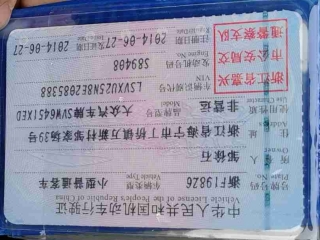 中华人民共和国机动车行驶证
Vehicle License of the People's Republic of China
号牌号码 浙F198Z6 车辆类型 小型普通客车
Plate No. Vehicle Type
所有人
Owner
住址 浙江省海宁市丁桥镇万新村邹家场39号
Address
使用性质 非营运 品牌型号 大众汽车牌SVW6451KED
Use Character Model
浙江省嘉兴
市公安局交
通警察支队
车辆识别代号 LSVXU25N8E2085388
VIN
发动机号码 589408
Engine No.
注册日期 2014-06-27 发证日期 2014-06-27